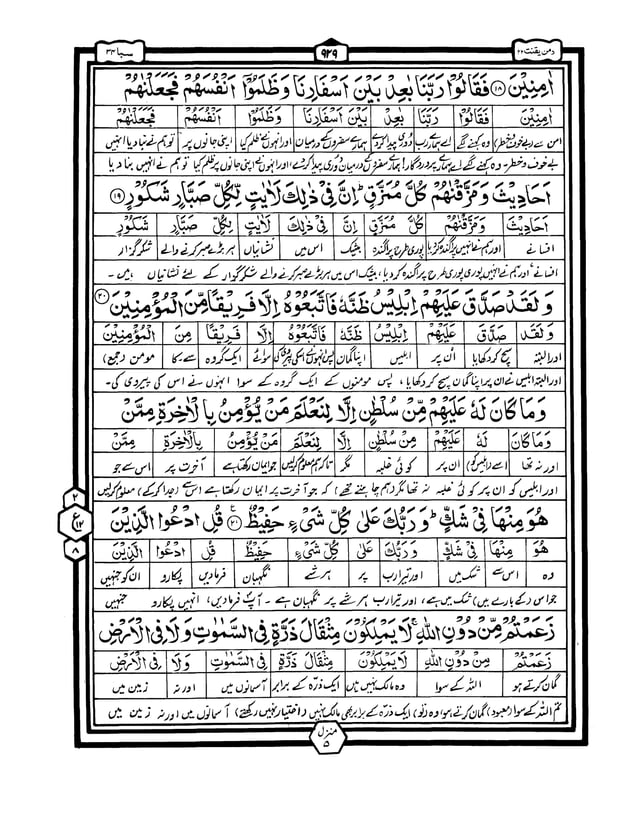 ومن یقنت ۲۲
۹۲۹
سبا ۳۴
اٰمِنِیْنَ ﴿۱۸﴾ فَقَالُوْا رَبَّنَا بٰعِدْ بَیْنَ اَسْفَارِنَا وَظَلَمُوْۤا اَنْفُسَهُمْ فَجَعَلْنٰهُمْ
اٰمِنِیْنَ فَقَالُوْا رَبَّنَا بٰعِدْ بَیْنَ اَسْفَارِنَا وَظَلَمُوْۤا اَنْفُسَهُمْ فَجَعَلْنٰهُمْ
امن سے (بے خوف وخطر) وہ کہنے لگے اے ہمارے رب دُوری پیدا کردے ہمارے سفروں کے درمیان اور انہوں نے ظلم کیا اپنی جانوں پر تو ہم نے بنا دیا انہیں
بے خوف وخطر۔ وہ کہنے لگے اے ہمارے پروردگار! ہمارے سفروں کے درمیان دُوری پیدا کردے اور انہوں نے اپنی جانوں پر ظلم کیا تو ہم نے انہیں بنا دیا
اَحَادِیْثَ وَمَزَّقْنٰهُمْ كُلَّ مُمَزَّقٍ ؕ اِنَّ فِیْ ذٰلِكَ لَاٰیٰتٍ لِّكُلِّ صَبَّارٍ شَكُوْرٍ ﴿۱۹﴾
اَحَادِیْثَ وَمَزَّقْنٰهُمْ كُلَّ مُمَزَّقٍ اِنَّ فِیْ ذٰلِكَ لَاٰیٰتٍ لِّكُلِّ صَبَّارٍ شَكُوْرٍ
افسانے اور ہم نے انہیں پراگندہ کردیا پوری طرح پراگندہ بیشک اس میں نشانیاں ہر بڑے صبر کرنے والے شکر گزار
افسانے اور ہم نے انہیں پوری پوری طرح پراگندہ کردیا، بیشک اس میں ہر بڑے صبر کرنے والے شکر گزار کے لئے نشانیاں ہیں۔
وَلَقَدْ صَدَّقَ عَلَیْهِمْ اِبْلِیْسُ ظَنَّهٗ فَاتَّبَعُوْهُ اِلَّا فَرِیْقًا مِّنَ الْمُؤْمِنِیْنَ ﴿۲۰﴾
وَلَقَدْ صَدَّقَ عَلَیْهِمْ اِبْلِیْسُ ظَنَّهٗ فَاتَّبَعُوْهُ اِلَّا فَرِیْقًا مِّنَ الْمُؤْمِنِیْنَ
اور البتہ سچ کر دکھایا اُن پر ابلیس اپنا گمان پس انہوں نے اسکی پیروی کی سوائے ایک گروہ سے۔ کا مومن (جمع)
اور البتہ ابلیس نے ان پر اپنا گمان سچ کر دکھایا، پس مومنوں کے ایک گروہ کے سوا انہوں نے اس کی پیروی کی۔
وَمَا كَانَ لَهٗ عَلَیْهِمْ مِّنْ سُلْطٰنٍ اِلَّا لِنَعْلَمَ مَنْ یُّؤْمِنُ بِالْاٰخِرَةِ مِمَّنْ
وَمَا كَانَ لَهٗ عَلَیْهِمْ مِّنْ سُلْطٰنٍ اِلَّا لِنَعْلَمَ مَنْ یُّؤْمِنُ بِالْاٰخِرَةِ مِمَّنْ
اور نہ تھا اسے (ابلیس کو) ان پر کوئی غلبہ مگر تاکہ ہم معلوم کرلیں جو ایمان رکھتا ہے آخرت پر اس سے جو
اور ابلیس کو ان پر کوئی غلبہ نہ تھا مگر (ہم چاہتے تھے) کہ جو آخرت پر ایمان رکھتا ہے اسے (جدا کرکے) معلوم کرلیں
هُوَ مِنْهَا فِیْ شَكٍّ ؕ وَرَبُّكَ عَلٰی كُلِّ شَیْءٍ حَفِیْظٌ ﴿۲۱﴾ قُلِ ادْعُوا الَّذِیْنَ
هُوَ مِنْهَا فِیْ شَكٍّ وَرَبُّكَ عَلٰی كُلِّ شَیْءٍ حَفِیْظٌ قُلِ ادْعُوا الَّذِیْنَ
وہ اس سے شک میں اور تیرا رب پر ہر شے نگہبان فرما دیں پکارو ان کو جنہیں
جو اس (کے بارے میں) شک میں ہے، اور تیرا رب ہر شے پر نگہبان ہے۔ آپؐ فرمادیں، انہیں پکارو جنہیں
زَعَمْتُمْ مِّنْ دُوْنِ اللّٰهِ ۚ لَا یَمْلِكُوْنَ مِثْقَالَ ذَرَّةٍ فِی السَّمٰوٰتِ وَلَا فِی الْاَرْضِ
زَعَمْتُمْ مِّنْ دُوْنِ اللّٰهِ لَا یَمْلِكُوْنَ مِثْقَالَ ذَرَّةٍ فِی السَّمٰوٰتِ وَلَا فِی الْاَرْضِ
گمان کرتے ہو اللہ کے سوا وہ مالک نہیں ہیں ایک ذرّہ کے برابر آسمانوں میں اور نہ زمین میں
تم اللہ کے سوا (معبود) گمان کرتے ہو وہ (تو) ایک ذرّہ کے برابر بھی مالک نہیں (اختیار نہیں رکھتے) آسمانوں میں اور نہ زمین میں
۲
ع
۱۲
۸
منزل
۵